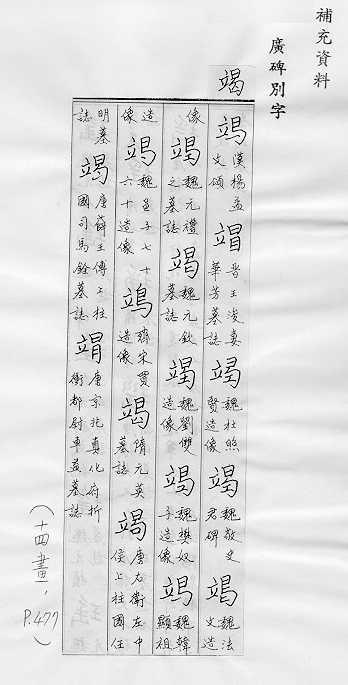 補充資料
廣碑別字
竭
竭漢楊孟文頌竭晉王浚妻華芳墓誌竭魏杜照賢造像竭魏敬史君碑竭魏法文造
像竭魏元禮之墓誌竭魏元欽墓誌竭魏劉雙造像竭魏樊奴子造像竭魏韓顯祖
造像竭魏孟子七十六十造像竭齊宋買造像竭隋元英墓誌竭唐右衛左中侯上柱國任
明墓誌竭唐薛王傅上柱國司馬銓墓誌竭唐京兆真化府折衝都尉車益墓誌
(十四畫,P.477)